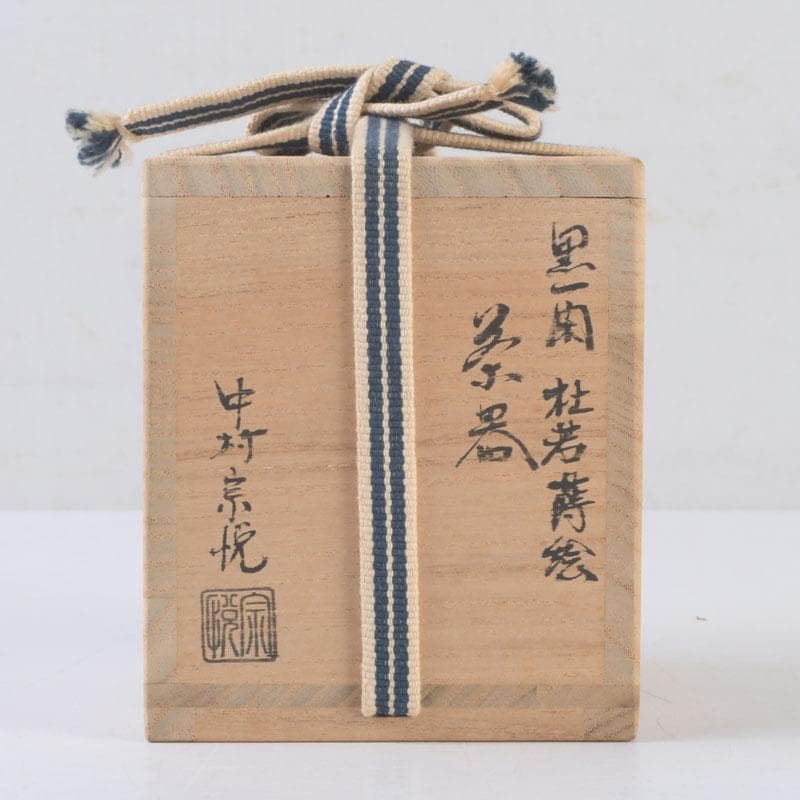 黒一閑 杜若蒔絵
茶器
中村宗悦
宗悦